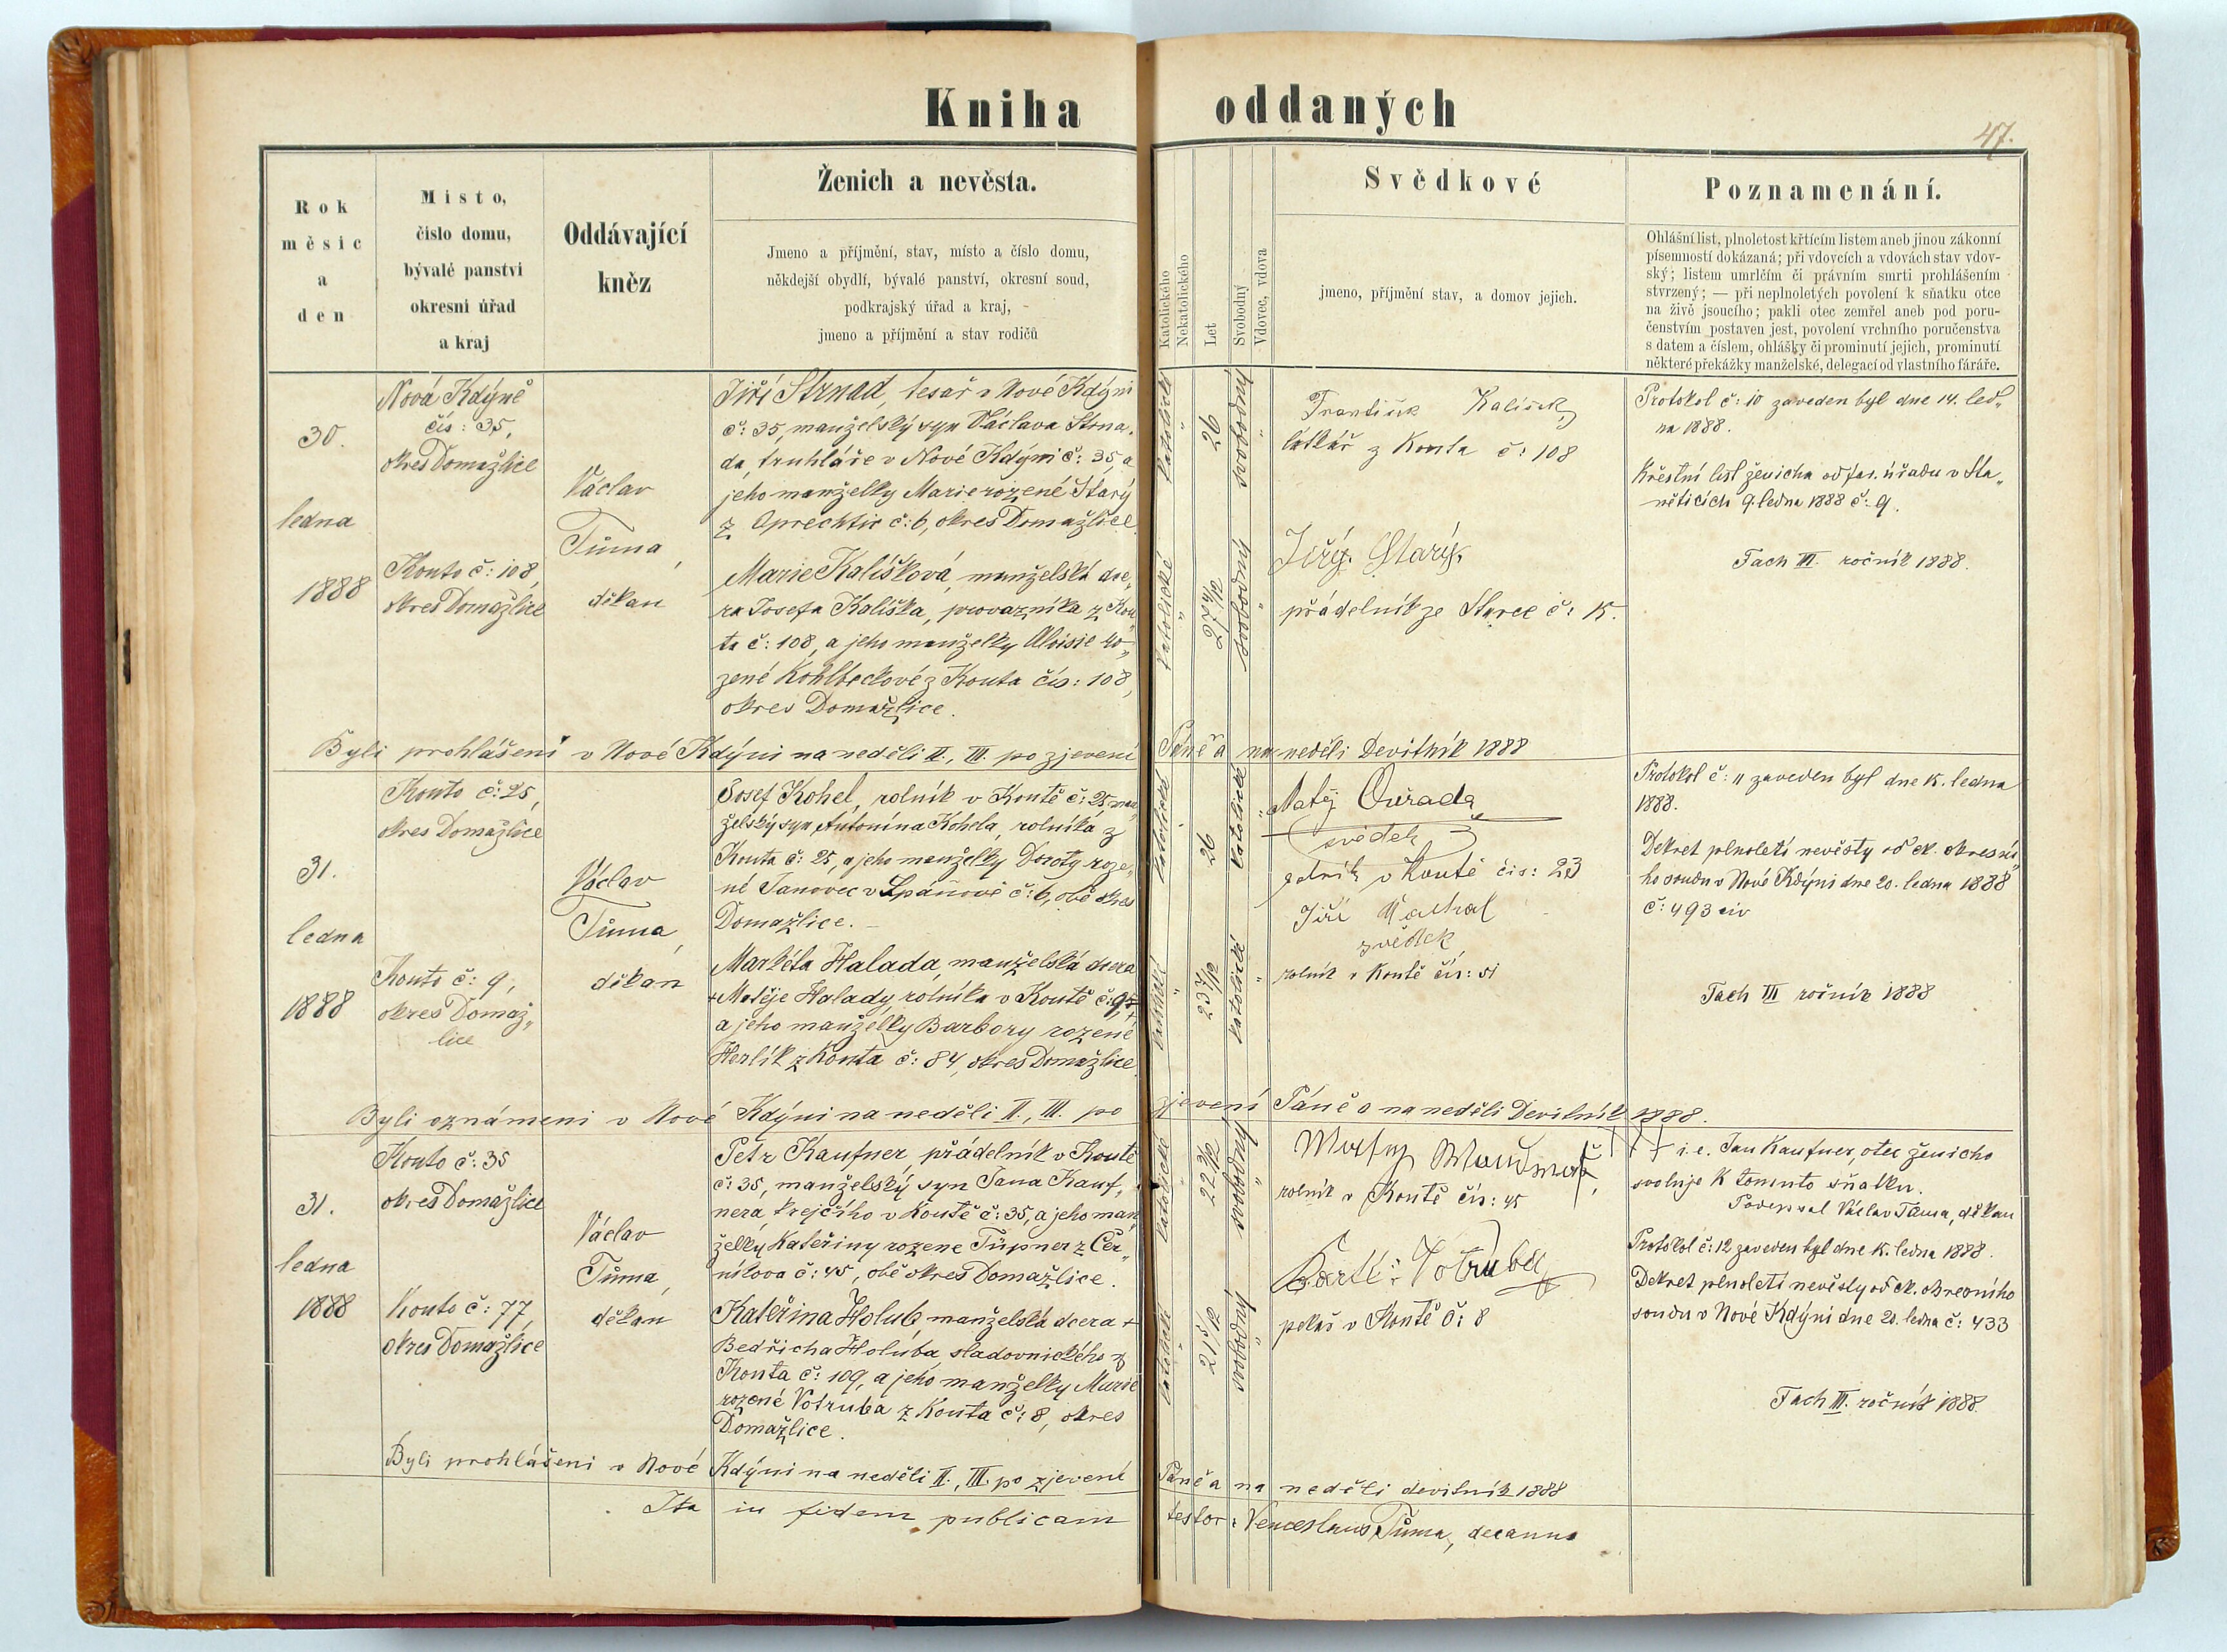 Kniha oddaných
47.
Rok
měsíc
a
den
Místo,
číslo domu,
bývalé panství
okresní úřad
a kraj
Oddávající
kněz
Ženich a nevěsta.
Jmeno a příjmění, stav, místo a číslo domu,
někdejší obydlí, bývalé panství, okresní soud,
podkrajský úřad a kraj,
jmeno a příjmění a stav rodičů
Katolického
Nekatolického
Let
Svobodný
Vdovec, vdova
Svědkové
jmeno, příjmění stav, a domov jejich.
Poznamenání.
Ohlášní list, plnoletost křtícím listem aneb jinou zákonní
písemností dokázaná; při vdovcích a vdovách stav vdov-
ský; listem umrlčím či právním smrti prohlášením
stvrzený; — při neplnoletých povolení k sňatku otce
na živě jsoucího; pakli otec zemřel aneb pod poru-
čenstvím postaven jest, povolení vrchního poručenstva
s datem a číslem, ohlášky či prominutí jejich, prominutí
některé překážky manželské, delegací od vlastního fáráře.
30.
ledna
1888
Nová Kdýně
čís: 35,
okres Domažlice
Kouto č: 108,
okres Domažlice
Václav
Tůma,
děkan
Jiří Strnad, tesař v Nové Kdýni
č: 35, manželský syn Václava Strna-
da, truhláře v Nové Kdýni č: 35, a
jeho manželky Marie rozené Starý
z Oprechtic č: 6, okres Domažlice
Marie Kalíšková, manželská dce„
ra Josefa Kalíška, provazníka z Kou„
ta č: 108, a jeho manželky Aloisie ro„
zené Kohlbeckové z Kouta čís: 108,
okres Domažlice.
katolické
"
26
svobodný
"
katolické
"
svobodný
"
František Kalíšek
látkář z Kouta č: 108
Jiřý Starý
přádelník ze Starce č: 15.
Protokol č: 10 zaveden byl dne 14. led„
na 1888.
Křestní list ženicha od far. úřadu v Sta„
něticích 9. ledna 1888 č: 9.
Fach III. ročník 1888.
Byli prohlášeni v Nové Kdýni na neděli II., III. po zjevení Páně a na neděli Devítník 1888
31.
ledna
1888
Kouto č: 25,
okres Domažlice
Kouto č: 9,
okres Domaž„
lice
Václav
Tůma,
děkan
Josef Kohel, rolník v Koutě č: 25 man„
želský syn Antonína Kohela, rolníka z
Kouta č: 25, a jeho manželky Doroty roze„
né Janovec v Spáňově č: 6, obě okres
Domažlice.
Markéta Halada, manželská dcera
+ Matěje Halady rolníka v Koutě č: 9, +
a jeho manželky Barbory rozené
Herlík z Kouta č: 84, okres Domažlice
katolické
"
26
katolické
"
katolické
"
katolické
"
Matěj Ouřada
svědek
rolník v Koutě čís: 23
Jiří Machal
svědek
rolník v Koutě čís: 51
Protokol č: 11 zaveden byl dne 15. ledna
1888.
Dekret plnoletí nevěsty od ck. okresní„
ho soudu v Nové Kdýni dne 20. ledna 1888
č: 493 civ
Fach III ročník 1888
Byli oznámeni v Nové Kdýni na neděli II., III. po zjevení Páně a na neděli Devítník 1888.
31.
ledna
1888
Kouto č: 35
okres Domažlice
Kouto č: 77,
okres Domažlice
Václav
Tůma,
děkan
Petr Kaufner přádelník v Koutě
č: 35, manželský syn Jana Kauf„
nera, krejčího v Koutě č: 35, a jeho man
želky Kateřiny rozene Tüpner z Čer„
níkova č: 45, obě okres Domažlice.
Kateřina Holub, manželská dcera +
Bedřicha Holuba, sladovnického z
Kouta č: 109, a jeho manželky Marie
rozené Votruba z Kouta č: 8, okres
Domažlice.
katolické
"
svobodný
"
katolické
"
svobodný
"
rolník v Koutě čís: 45
Bartl: Votruba
pekař v Koutě č: 8
i. e. Jan Kaufner, otec ženicha
svoluje k tomuto sňatku.
Podepsal Václav Tůma, děkan
Protokol č: 12 zaveden byl dne 15. ledna 1888.
Dekret plnoletí nevěsty od ck. okresního
soudu v Nové Kdýni dne 20. ledna č: 433
Fach III. ročník 1888.
Byli prohlášeni v Nové Kdýni na neděli II., III. po zjevení Páně a na neděli devítník 1888
Ita in fidem publicam testor: Venceslaus Tůma, decanus